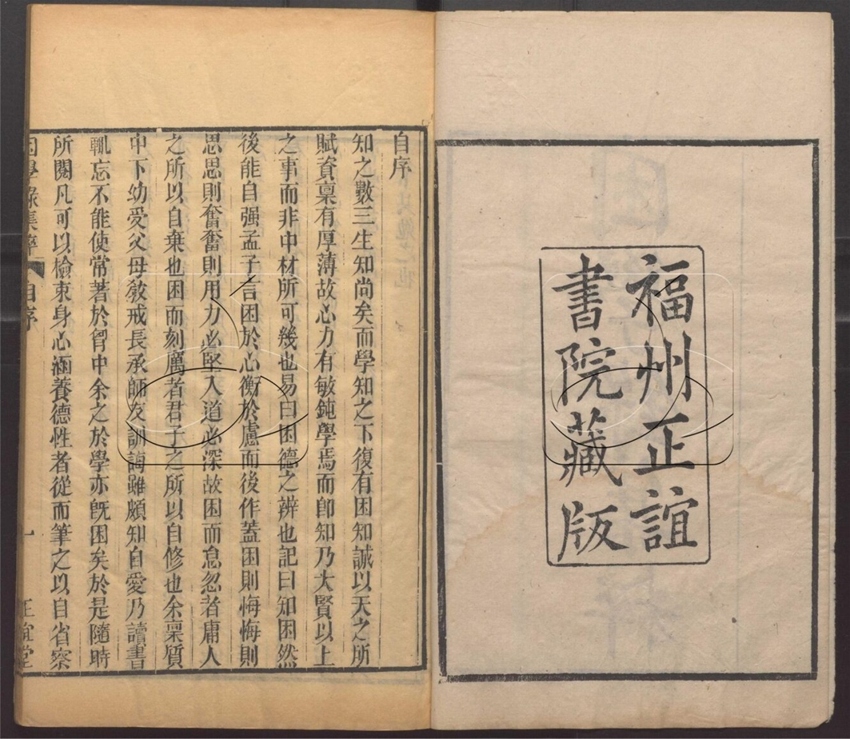 福州正誼
書院藏版
自序
知之數三生知尚矣而學知之下復有困知誠以天之所
賦資稟有厚薄故心力有敏鈍學焉而卽知乃大賢以上
之事而非中材所可幾也易曰困德之辨也記曰知困然
後能自强孟子言困於心衡於慮而後作蓋困則悔悔則
思思則奮奮則用力必堅入道必深故困而怠忽者庸人
之所以自棄也困而刻厲者君子之所以自修也余稟質
中下幼愛父母敎戒長承師友訓誨雖頗知自愛乃讀書
輒忘不能使常著於胷中余之於學亦旣困矣於是隨時
所閱凡可以檢束身心涵養德性者從而筆之以自省察
困學錄集粹 自序 一 正誼堂